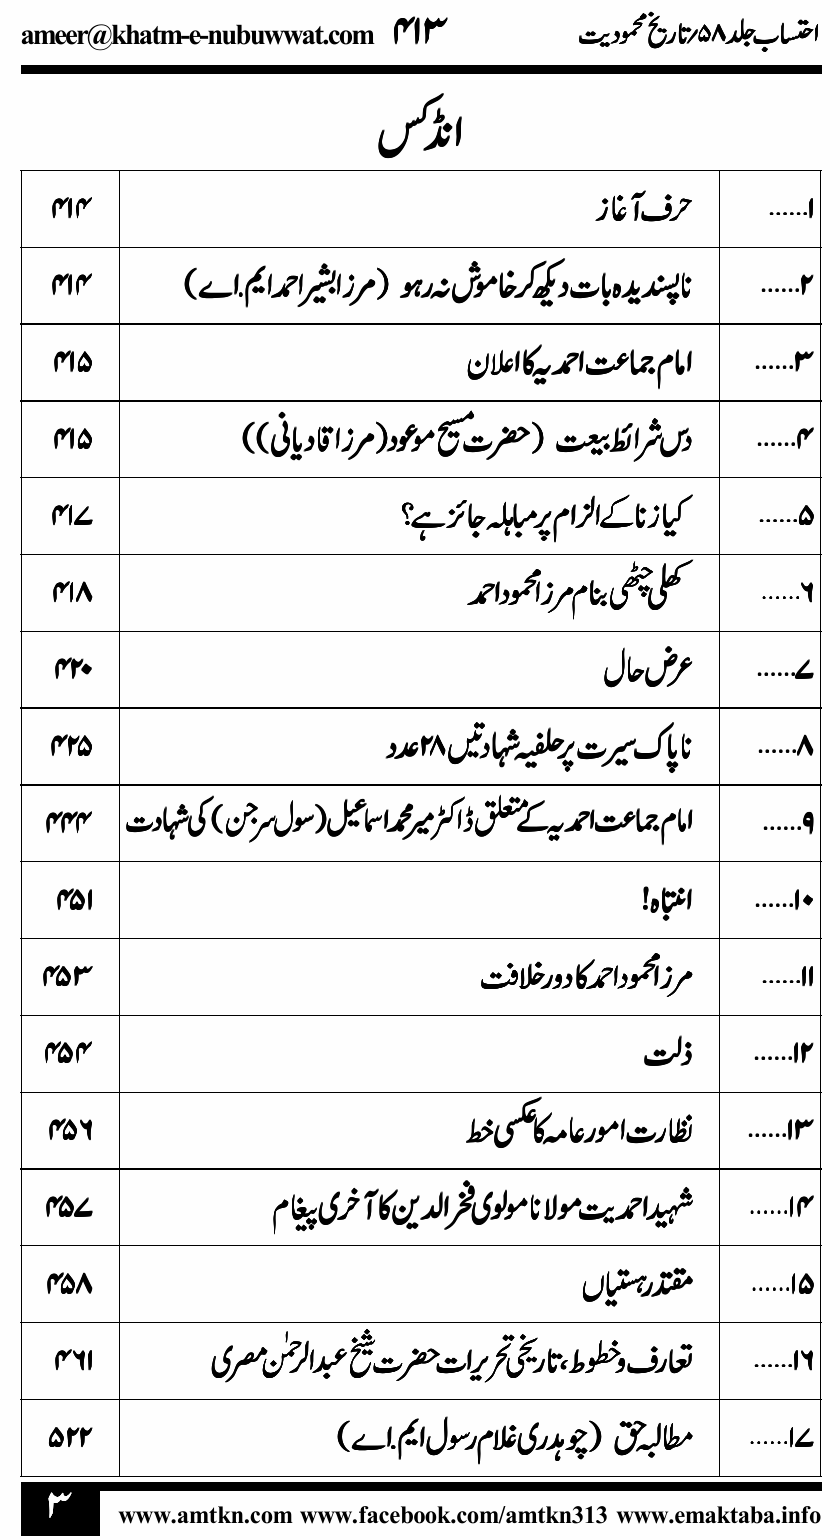 احتساب جلد ۵۸/تاریخ محمودیت ۴۱۳ ameer@khatm-e-nubuwwat.com
انڈکس
۱...... حرف آغاز ۴۱۴
۲...... ناپسندیدہ بات دیکھ کر خاموش نہ رہو (مرزا بشیر احمد ایم.اے) ۴۱۴
۳...... امام جماعت احمدیہ کا اعلان ۴۱۵
۴...... دس شرائط بیعت (حضرت مسیح موعود (مرزا قادیانی)) ۴۱۵
۵...... کیا زنا کے الزام پر مباہلہ جائز ہے؟ ۴۱۷
۶...... کھلی چٹھی بنام مرزا محمود احمد ۴۱۸
۷...... عرض حال ۴۲۰
۸...... ناپاک سیرت پر حلفیہ شہادتیں ۲۸ عدد ۴۲۵
۹...... امام جماعت احمدیہ کے متعلق ڈاکٹر میر محمد اسماعیل (سول سرجن) کی شہادت ۴۴۴
۱۰...... انتباہ! ۴۵۱
۱۱...... مرزا محمود احمد کا دور خلافت ۴۵۳
۱۲...... ذلت ۴۵۴
۱۳...... نظارت امور عامہ کا عکسی خط ۴۵۶
۱۴...... شہید احمدیت مولانا مولوی فخر الدین کا آخری پیغام ۴۵۷
۱۵...... مقتدر ہستیاں ۴۵۸
۱۶...... تعارف و خطوط، تاریخی تحریرات حضرت شیخ عبدالرحمٰن مصری ۴۶۱
۱۷...... مطالبہ حق (چوہدری غلام رسول ایم.اے) ۵۲۲
۳ www.amtkn.com www.facebook.com/amtkn313 www.emaktaba.info